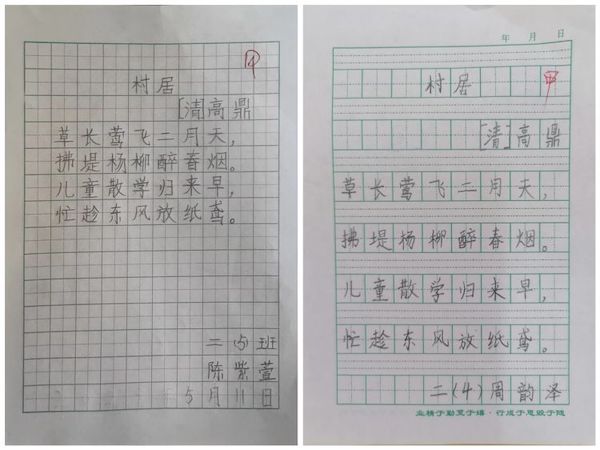 甲
村居
[清高鼎
草长莺飞二月天，
拂堤杨柳醉春烟。
儿童散学归来早，
忙趁东风放纸鸢。
二(5)班
陈紫萱
5月11日
年 月 日
村居
甲
[清]高鼎
草长莺飞二月天，
拂堤杨柳醉春烟。
儿童散学归来早，
忙趁东风放纸鸢。
二(4)周韵泽
业精于勤荒于嬉·行成于思毁于随